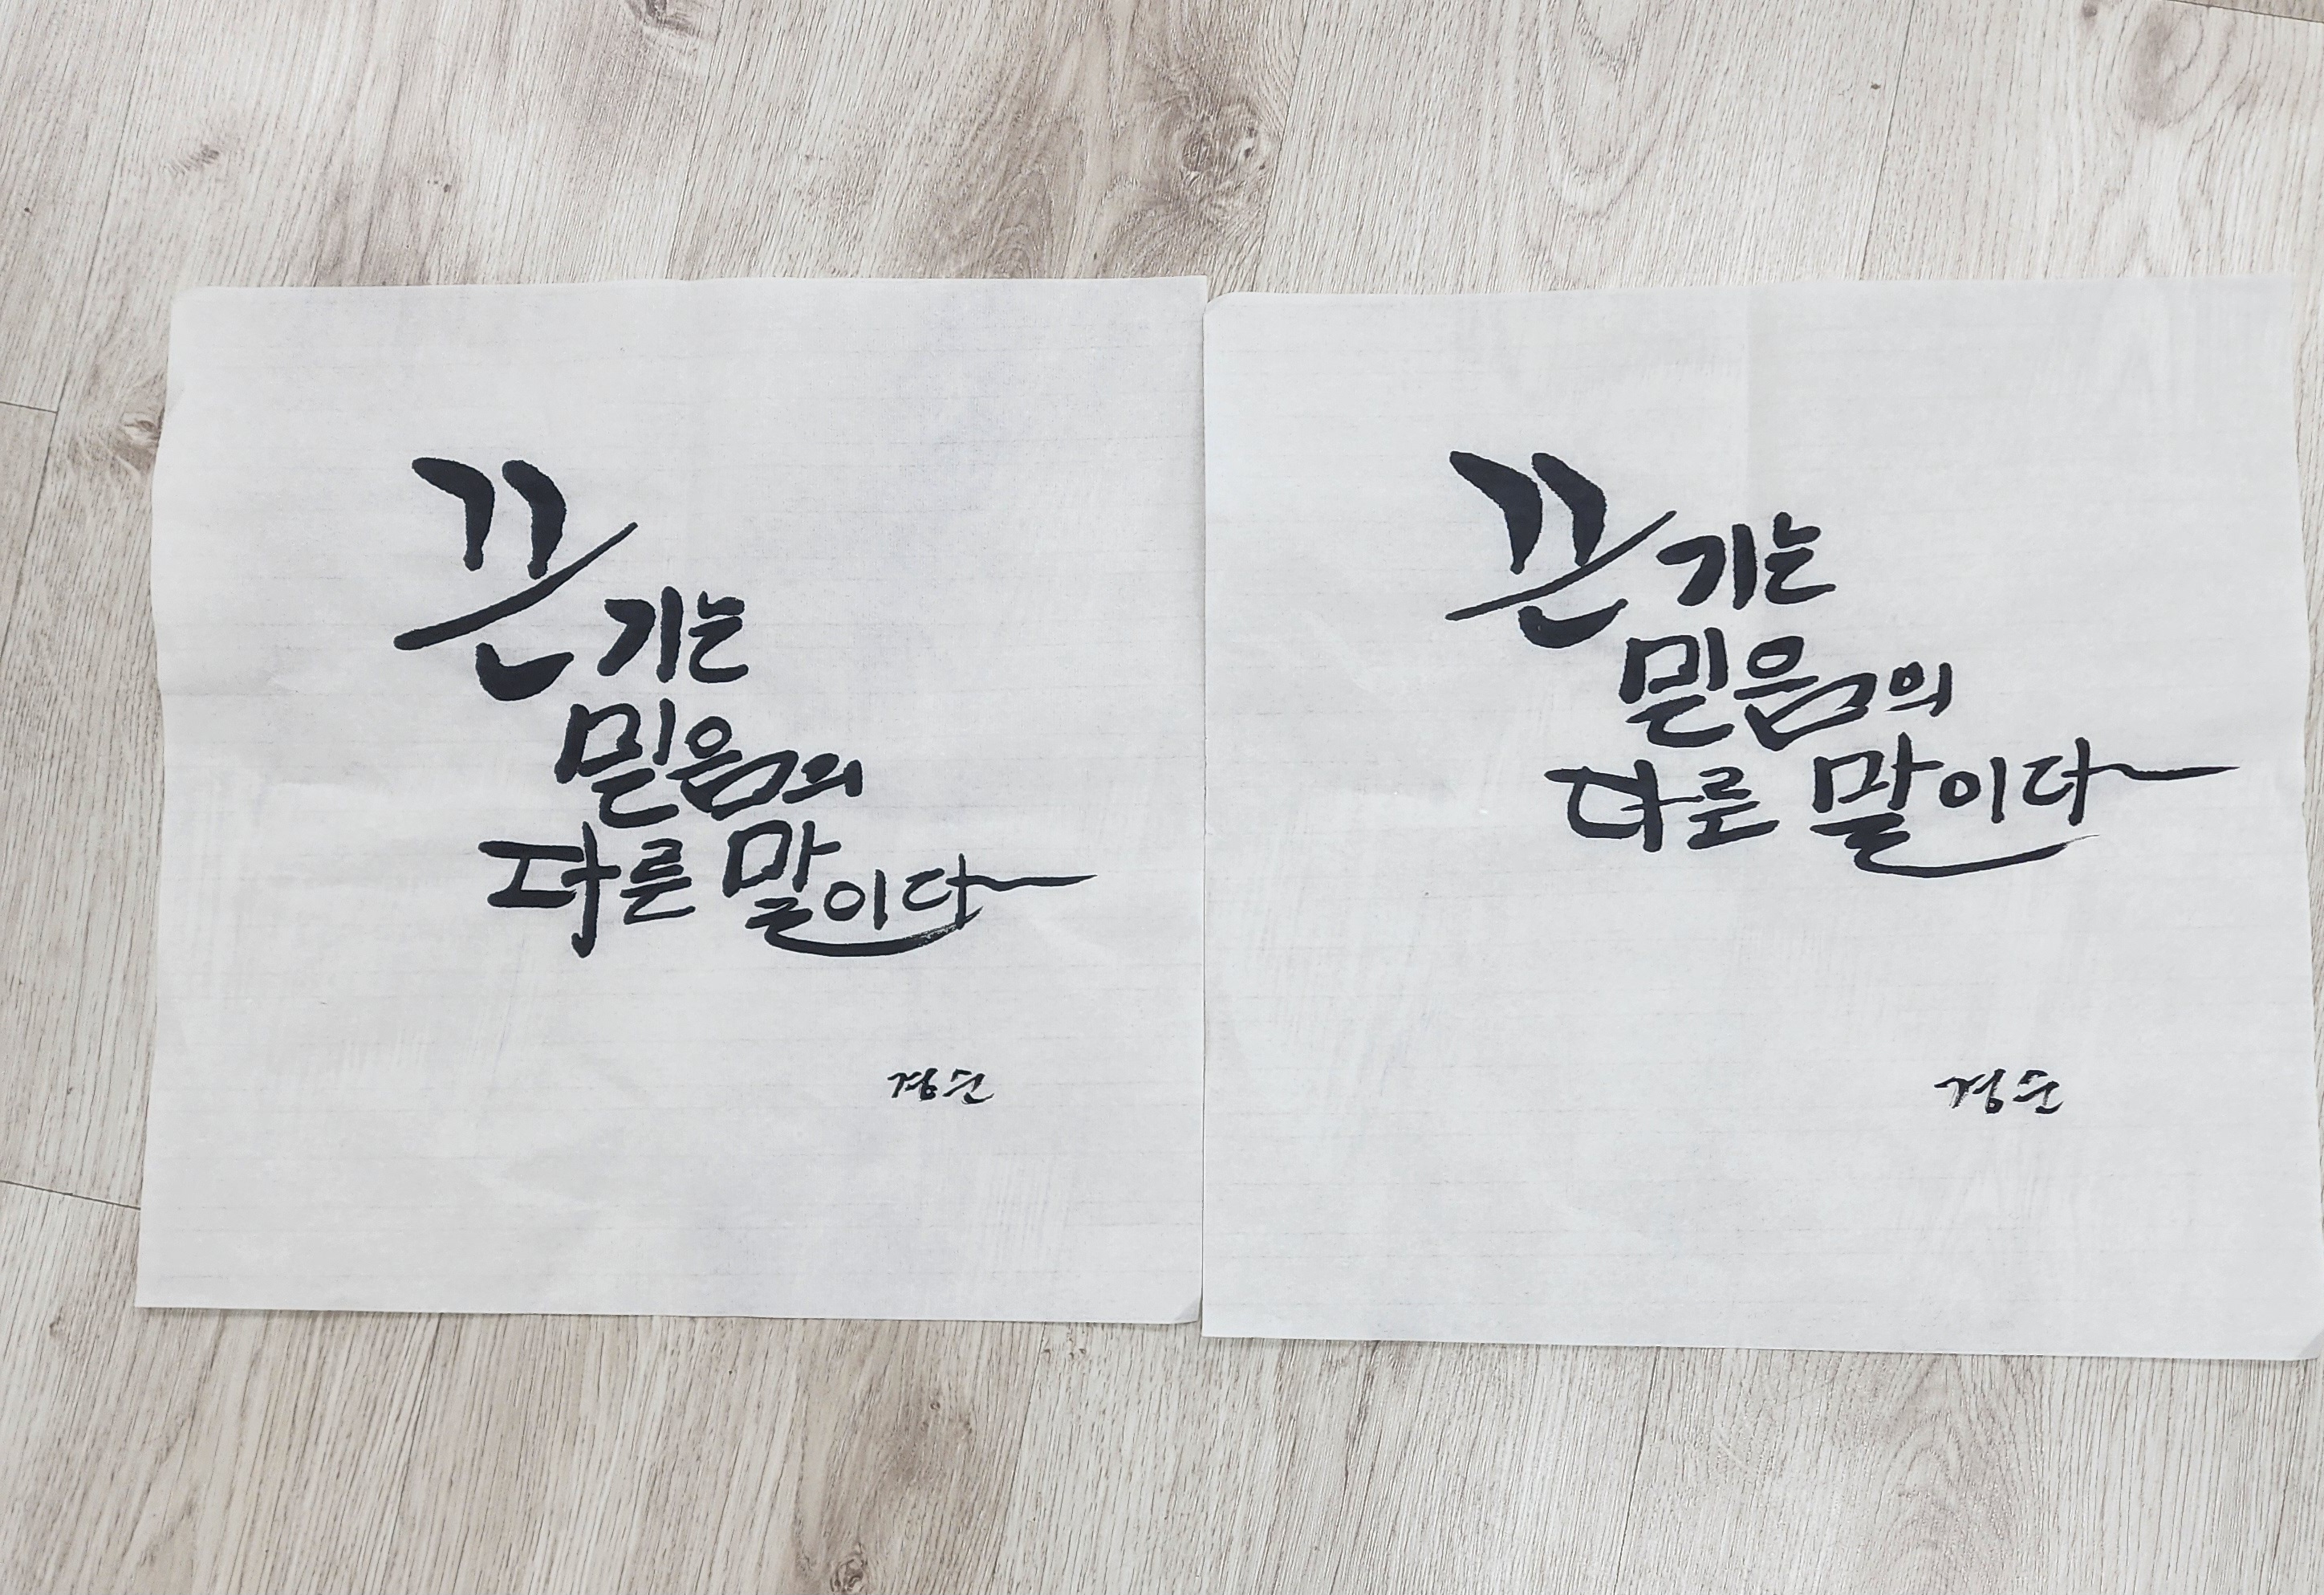 끈기는
믿음의
다른 말이다
경순
끈기는
믿음의
다른 말이다
경순